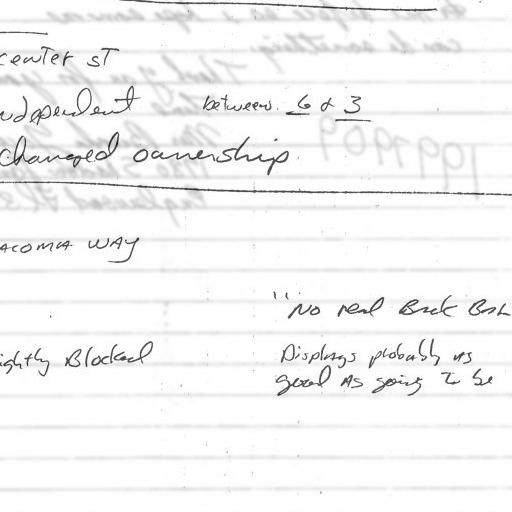 center ST
ndependent between 6 & 3
changed ownership.
ACOMA WAY
"No real Back
ightly Blocked
Displays probably as
good as going to be